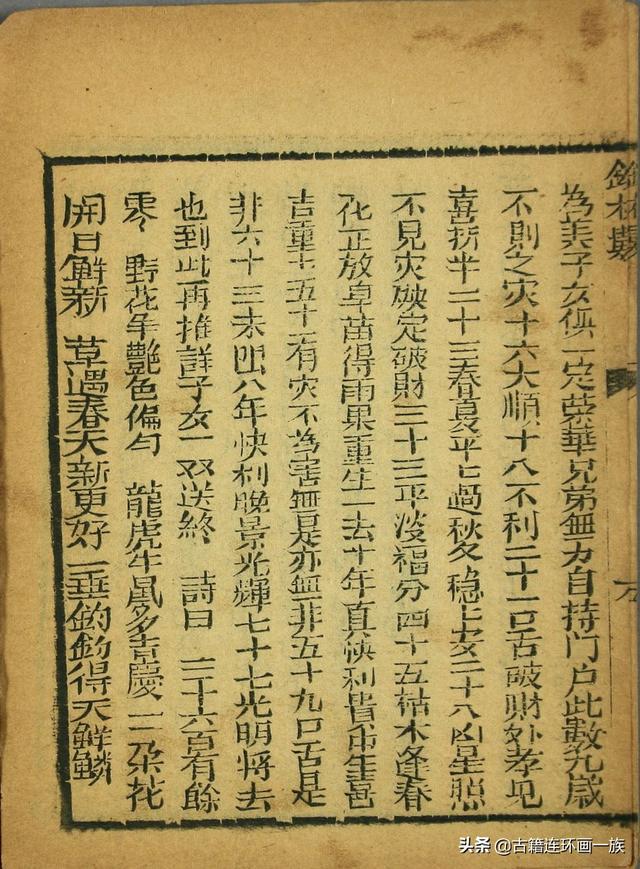 為美子女俱一定荣華兄弟無力自持门户此數九歲
不則之灾十六大順十八不利二十一口舌破財外孝見
喜折半二十三春夏平七過秋冬穩上安二十八凶星照
不見灾殃定破財三十三平淡福分四十五枯木逢春
花正放旱苗得雨果重生一去十年真快利
吉重七五十一有灾不為害無是亦無非五十九口舌是
非六十三未出八年快利晚景光輝七十七光明将去
也到此再推詳子女一双送終 詩曰 二十六百有餘
零 野花争艷色偏勻 龍虎牛鼠多吉慶 一朶花
開日鮮新 草遇春天新更好 一垂釣釣得天鮮鱗
头条 @古籍连环画一族